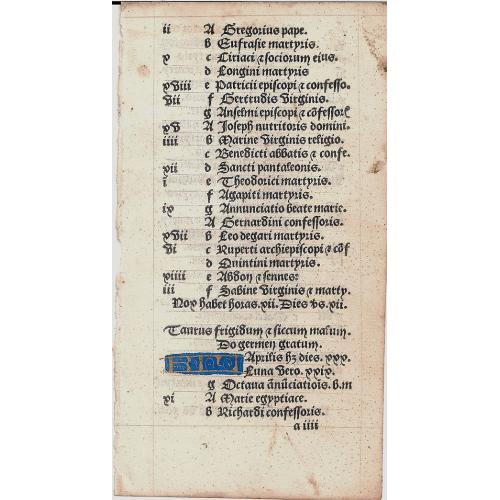 ii A Gregorius pape.
b Eufrasie martyris.
x c Ciriaci ⁊ sociorum eius.
d Longini martyris
xviii e Patricii episcopi ⁊ confesso.
vii f Gertrudis virginis.
g Anselmi episcopi ⁊ cõfessor
xv A Joseph nutritoris domini.
iiii b Marine virginis religio.
c Benedicti abbatis ⁊ confe.
xii d Sancti pantaleonis.
i e Theodorici martyris.
f Agapiti martyris.
ix g Annunciatio beate marie.
A Bernardini confessoris.
xvii b Leodegari martyris.
vi c Ruperti archiepiscopi ⁊ cõf
d Quintini martyris.
xiiii e Abdon ⁊ sennes:
iii f Sabine virginis ⁊ marty.
Nox habet horas .xii. Dies vs .xii.
Taurus frigidum ⁊ siccum malum.
Do germen gratum.
Aprilis hz dies .xxx.
Luna vero .xxix.
g Octaua ãnũciatiõis .b.m
xi A Marie egyptiace.
b Richardi confessoris.
a iiii